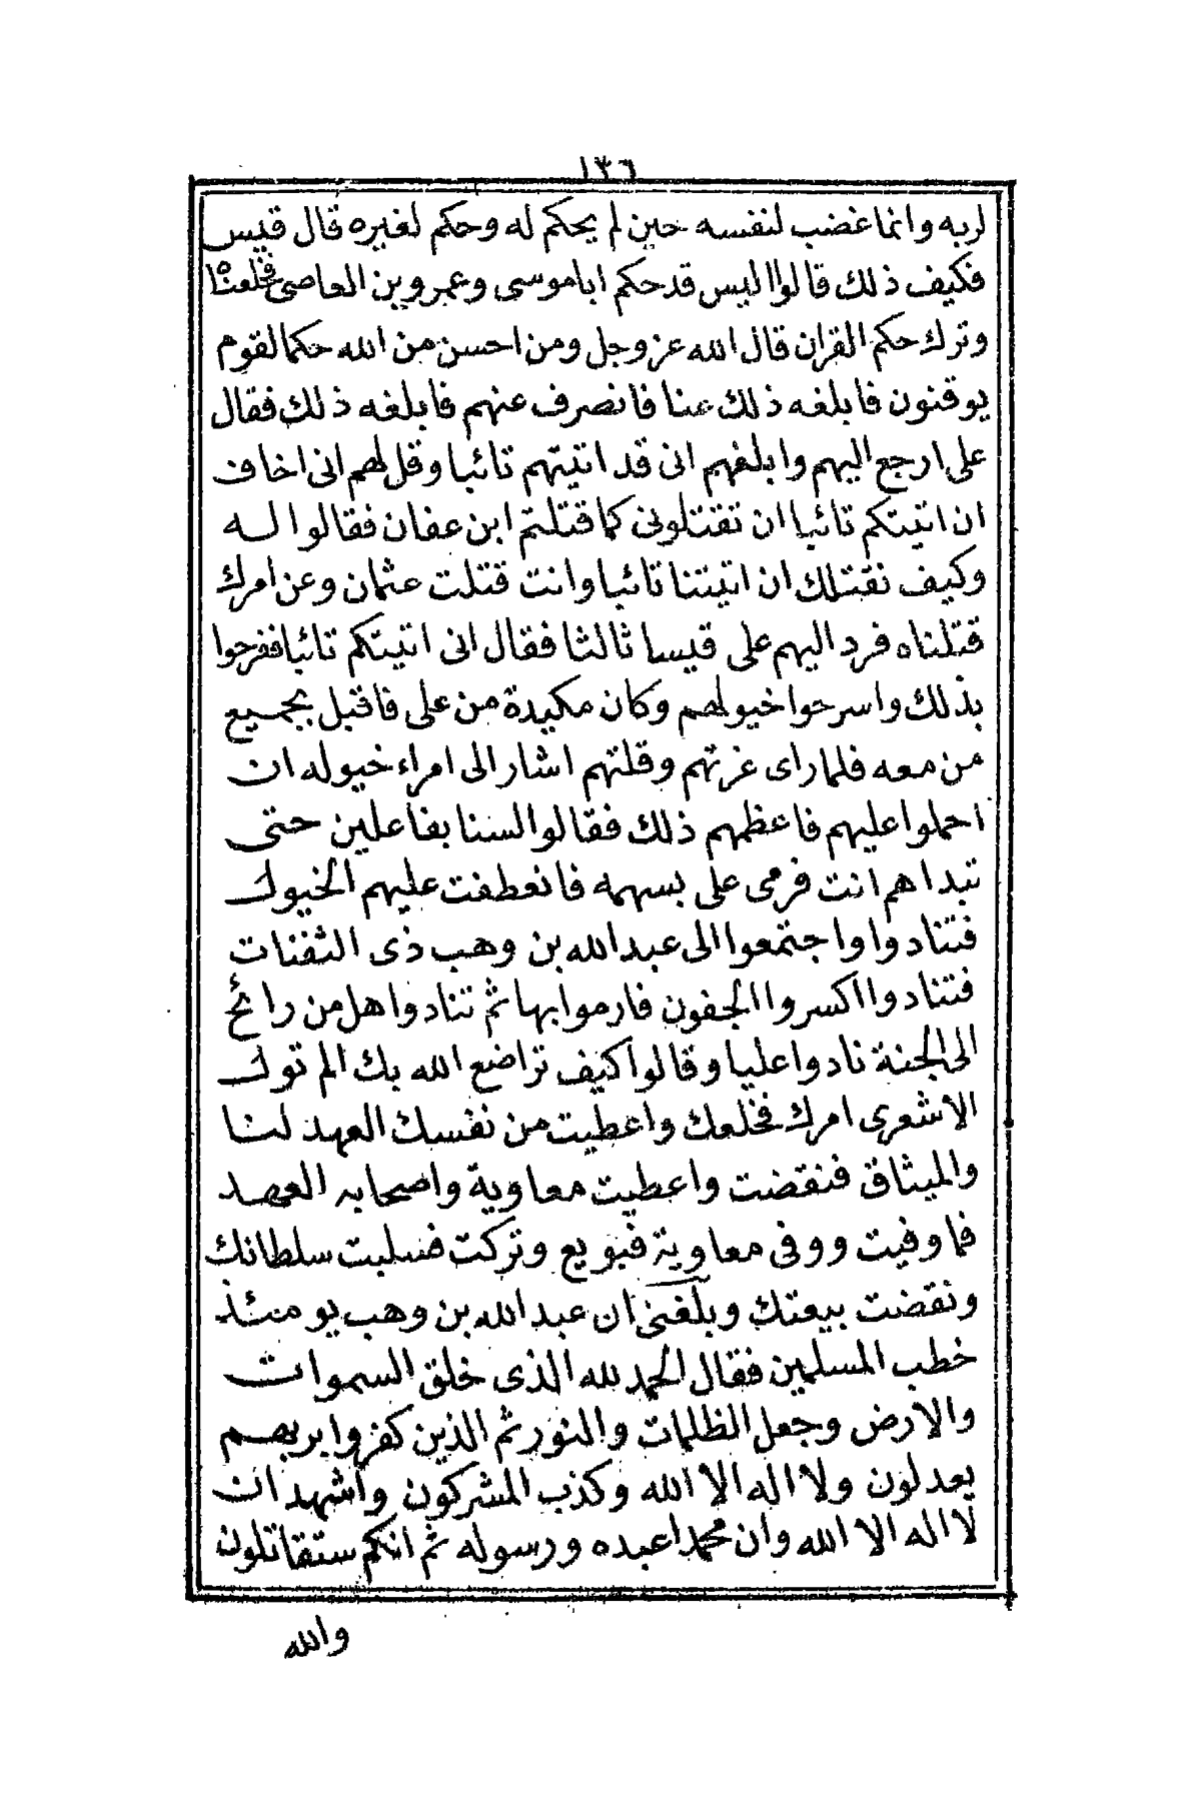 ١٣٦
لربه وانما غضب لنفسه حين لم يحكم له وحكم لغيره قال قيس
فكيف ذلك قالوا اليس قد حكم اباموسى وعمرو بن العاصى فخلعناه
وترك حكم القران قال الله عز وجل ومن احسن من الله حكما لقوم
يوقنون فابلغه ذلك عنا فانصرف عنهم فابلغه ذلك فقال
على ارجع اليهم وابلغهم انى قد اتيتهم تائبا وقل لهم انى اخاف
ان اتيتكم تائبا ان تقتلونى كما قتلتم ابن عفان فقالوا له
وكيف نقتلك ان اتيتنا تائبا وانت قتلت عثمان وعن امرك
قتلناه فرد اليهم على قيسا ثالثا فقال انى اتيتكم تائبا ففرحوا
بذلك واسرحوا خيولهم وكان مكيدة من على فاقبل بجميع
من معه فلما راى غرتهم وقلتهم اشار الى امراء خيوله ان
احملوا عليهم فاعظمهم ذلك فقالوا لسنا بفاعلين حتى
تبداهم انت فرمى على بسهمه فانعطفت عليهم الخيول
فتنادوا واجتمعوا الى عبدالله بن وهب ذى الثفنات
فتنادوا اكسروا الجفون فارموا بها ثم تنادوا هل من رائح
الى الجنة نادوا عليا وقالوا كيف تراضع الله بك الم تول
الاشعرى امرك فخلعك واعطيت من نفسك العهد لنا
والميثاق فنقضت واعطيت معاوية واصحابه العهد
فما وفيت ووفى معاوية فبويع وتركت فسلبت سلطانك
ونقضت بيعتك وبلغنى ان عبدالله بن وهب يومئذ
خطب المسلمين فقال الحمد لله الذى خلق السموات
والارض وجعل الظلمات والنور ثم الذين كفروا بربهم
يعدلون ولا اله الا الله وكذب المشركون واشهد ان
لا اله الا الله وان محمدا عبده ورسوله ثم انكم ستقاتلون
والله